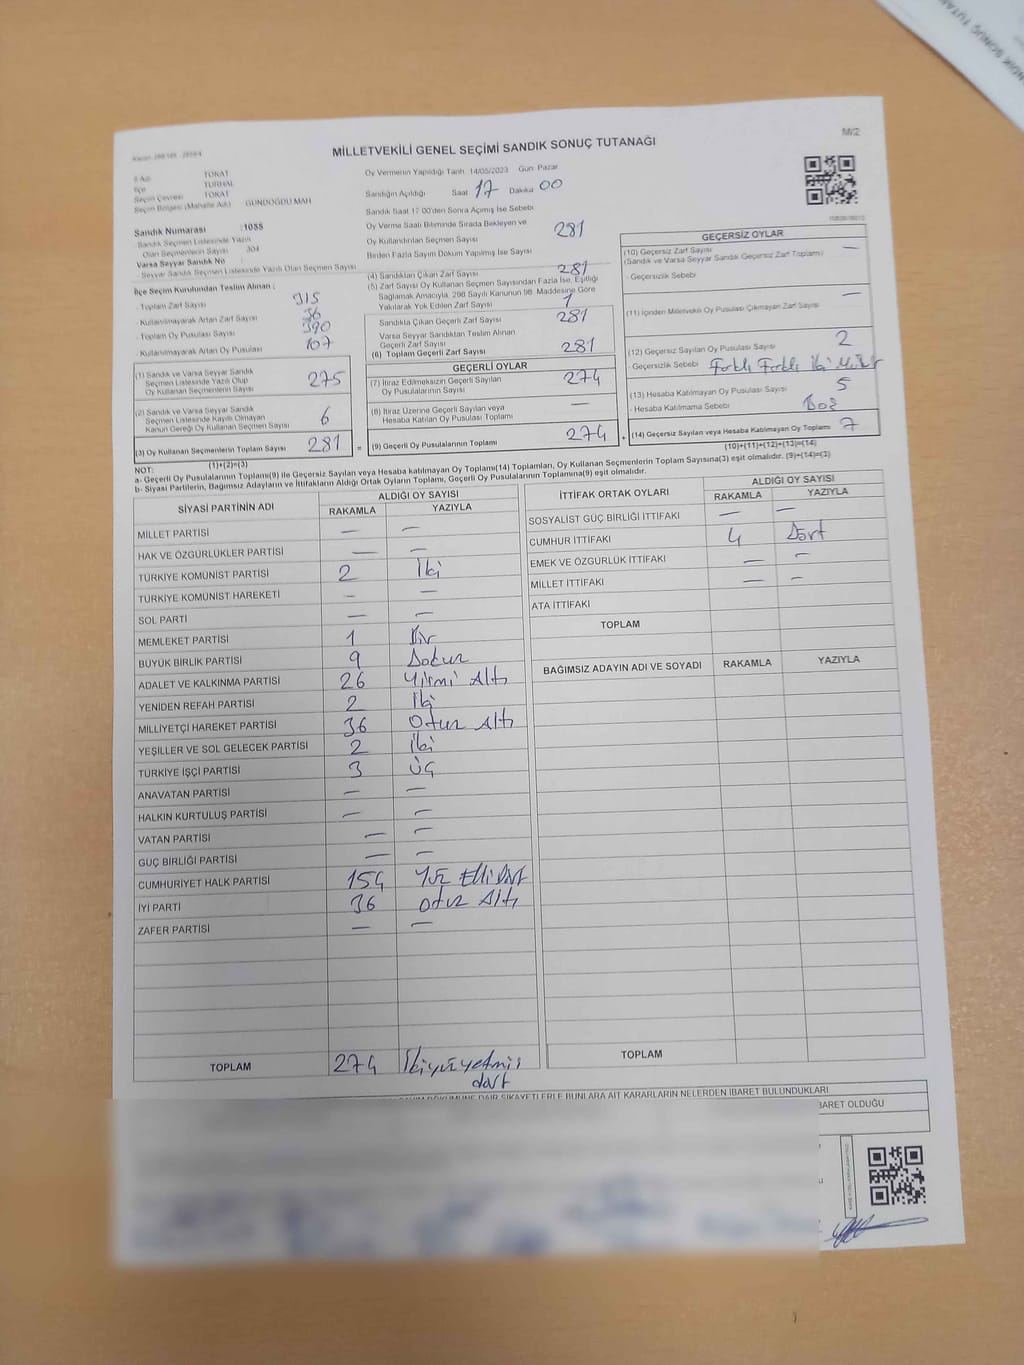 M/2
MİLLETVEKİLİ GENEL SEÇİMİ SANDIK SONUÇ TUTANAĞI
İl Adı TOKAT
İlçe TURHAL
Seçim Çevresi TOKAT
Seçim Bölgesi (Mahalle Adı) GÜNDOĞDU MAH
Sandık Numarası :1055
Sandık Seçmen Listesinde Yazılı
Olan Seçmenlerin Sayısı 304
Varsa Seyyar Sandık No :
- Seyyar Sandık Seçmen Listesinde Yazılı Olan Seçmen Sayısı
İlçe Seçim Kurulundan Teslim Alınan :
- Toplam Zarf Sayısı 315
- Kullanılmayarak Artan Zarf Sayısı 36
- Toplam Oy Pusulası Sayısı 390
- Kullanılmayarak Artan Oy Pusulası 107
(1) Sandık ve Varsa Seyyar Sandık
Seçmen Listesinde Yazılı Olup
Oy Kullanan Seçmenlerin Sayısı 275
(2) Sandık ve Varsa Seyyar Sandık
Seçmen Listesinde Kayıtlı Olmayan
Kanun Gereği Oy Kullanan Seçmen Sayısı 6
(3) Oy Kullanan Seçmenlerin Toplam Sayısı 281
(1)+(2)=(3)
Oy Vermenin Yapıldığı Tarih 14/05/2023 Gün: Pazar
Sandığın Açıldığı Saat 17 Dakika 00
Sandık Saat 17:00'den Sonra Açılmış İse Sebebi
Oy Verme Saati Bitiminde Sırada Bekleyen ve
Oy Kullandırılan Seçmen Sayısı 281
Birden Fazla Sayım Döküm Yapılmış İse Sayısı
(4) Sandıktan Çıkan Zarf Sayısı 281
(5) Zarf Sayısı Oy Kullanan Seçmen Sayısından Fazla İse, Eşitliği
Sağlamak Amacıyla, 298 Sayılı Kanunun 98. Maddesine Göre
Yakılarak Yok Edilen Zarf Sayısı
Sandıkta Çıkan Geçerli Zarf Sayısı 281
Varsa Seyyar Sandıktan Teslim Alınan
Geçerli Zarf Sayısı
(6) Toplam Geçerli Zarf Sayısı 281
GEÇERLİ OYLAR
(7) İtiraz Edilmeksizin Geçerli Sayılan
Oy Pusulalarının Sayısı 274
(8) İtiraz Üzerine Geçerli Sayılan veya
Hesaba Katılan Oy Pusulası Toplamı —
= (9) Geçerli Oy Pusulalarının Toplamı 274 +
GEÇERSİZ OYLAR
(10) Geçersiz Zarf Sayısı —
(Sandık ve Varsa Seyyar Sandık Geçersiz Zarf Toplamı)
- Geçersizlik Sebebi
(11) İçinden Milletvekili Oy Pusulası Çıkmayan Zarf Sayısı —
(12) Geçersiz Sayılan Oy Pusulası Sayısı 2
- Geçersizlik Sebebi Farklı Farklı İki Mühür
(13) Hesaba Katılmayan Oy Pusulası Sayısı 5
- Hesaba Katılmama Sebebi Boş
(14) Geçersiz Sayılan veya Hesaba Katılmayan Oy Toplamı 7
(10)+(11)+(12)+(13)=(14)
NOT:
a- Geçerli Oy Pusulalarının Toplamı(9) ile Geçersiz Sayılan veya Hesaba katılmayan Oy Toplamı(14) Toplamları, Oy Kullanan Seçmenlerin Toplam Sayısına(3) eşit olmalıdır. (9)+(14)=(3)
b- Siyasi Partilerin, Bağımsız Adayların ve İttifakların Aldığı Ortak Oyların Toplamı, Geçerli Oy Pusulalarının Toplamına(9) eşit olmalıdır.
SİYASİ PARTİNİN ADI ALDIĞI OY SAYISI
RAKAMLA YAZIYLA
MİLLET PARTİSİ — —
HAK VE ÖZGÜRLÜKLER PARTİSİ — —
TÜRKİYE KOMÜNİST PARTİSİ 2 İki
TÜRKİYE KOMÜNİST HAREKETİ — —
SOL PARTİ — —
MEMLEKET PARTİSİ 1 Bir
BÜYÜK BİRLİK PARTİSİ 9 Dokuz
ADALET VE KALKINMA PARTİSİ 26 Yirmi Altı
YENİDEN REFAH PARTİSİ 2 İki
MİLLİYETÇİ HAREKET PARTİSİ 36 Otuz Altı
YEŞİLLER VE SOL GELECEK PARTİSİ 2 İki
TÜRKİYE İŞÇİ PARTİSİ 3 Üç
ANAVATAN PARTİSİ — —
HALKIN KURTULUŞ PARTİSİ — —
VATAN PARTİSİ — —
GÜÇ BİRLİĞİ PARTİSİ — —
CUMHURİYET HALK PARTİSİ 154 Yüz Elli Dört
İYİ PARTİ 36 Otuz Altı
ZAFER PARTİSİ — —
TOPLAM 274 İkiyüzyetmiş
dört
İTTİFAK ORTAK OYLARI ALDIĞI OY SAYISI
RAKAMLA YAZIYLA
SOSYALİST GÜÇ BİRLİĞİ İTTİFAKI — —
CUMHUR İTTİFAKI 4 Dört
EMEK VE ÖZGÜRLÜK İTTİFAKI — —
MİLLET İTTİFAKI — —
ATA İTTİFAKI
TOPLAM
BAĞIMSIZ ADAYIN ADI VE SOYADI RAKAMLA YAZIYLA
TOPLAM
DÖKÜMÜNE DAİR ŞİKAYETLERLE BUNLARA AİT KARARLARIN NELERDEN İBARET BULUNDUKLARI
BARET OLDUĞU